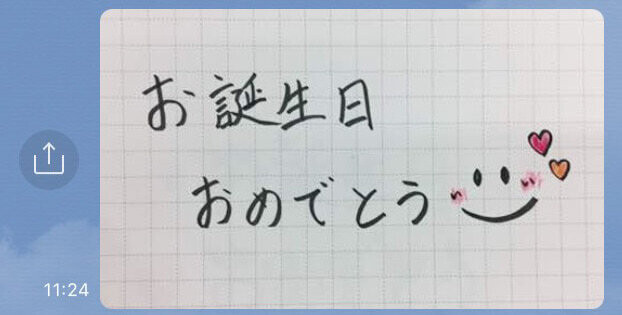 お誕生日
おめでとう
11:24